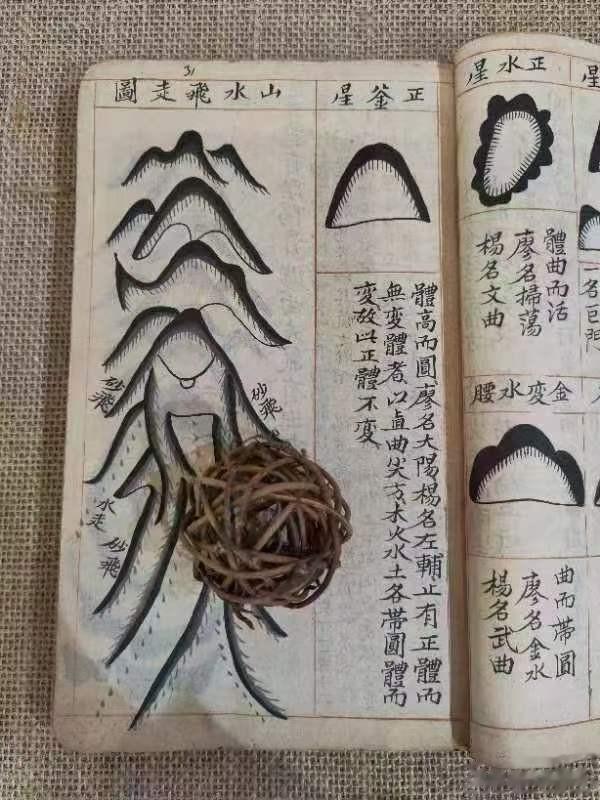 星
一名巨門
正水星
體曲而活
廖名掃蕩
楊名文曲
金变水腰
曲而帶圓
廖名金水
楊名武曲
正釜星
體高而圓廖名大陽楊名左輔正有正體而
無变體者以直曲尖方木火水土各帶圓體而
变故以正體不变
31
山水飛走圖
砂飛
砂飛
水走
砂飛